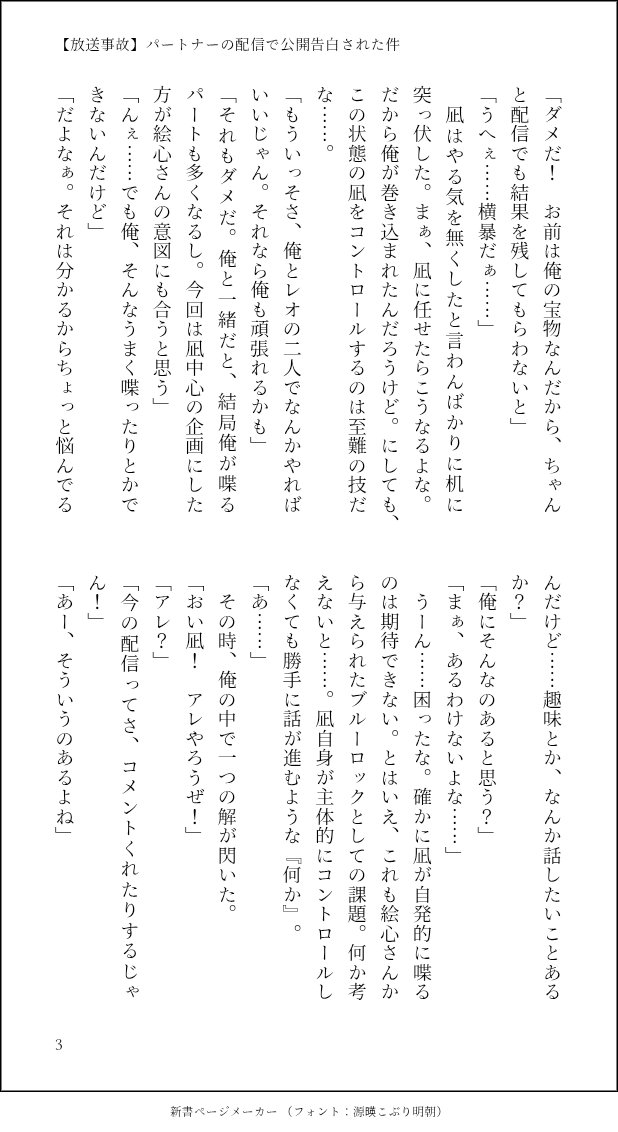 【放送事故】パートナーの配信で公開告白された件
「ダメだ！　お前は俺の宝物なんだから、ちゃん
と配信でも結果を残してもらわないと」
「うへぇ……横暴だぁ……」
　凪はやる気を無くしたと言わんばかりに机に
突っ伏した。まぁ、凪に任せたらこうなるよな。
だから俺が巻き込まれたんだろうけど。にしても、
この状態の凪をコントロールするのは至難の技だ
な……。
「もういっそさ、俺とレオの二人でなんかやれば
いいじゃん。それなら俺も頑張れるかも」
「それもダメだ。俺と一緒だと、結局俺が喋る
パートも多くなるし。今回は凪中心の企画にした
方が絵心さんの意図にも合うと思う」
「んぇ……でも俺、そんなうまく喋ったりとかで
きないんだけど」
「だよなぁ。それは分かるからちょっと悩んでる
んだけど……趣味とか、なんか話したいことある
か？」
「俺にそんなのあると思う？」
「まぁ、あるわけないよな……」
　うーん……困ったな。確かに凪が自発的に喋る
のは期待できない。とはいえ、これも絵心さんか
ら与えられたブルーロックとしての課題。何か考
えないと……。凪自身が主体的にコントロールし
なくても勝手に話が進むような『何か』。
「あ……」
　その時、俺の中で一つの解が閃いた。
「おい凪！　アレやろうぜ！」
「アレ？」
「今の配信ってさ、コメントくれたりするじゃ
ん！」
「あー、そういうのあるよね」
3
新書ページメーカー（フォント：源暎こぶり明朝）